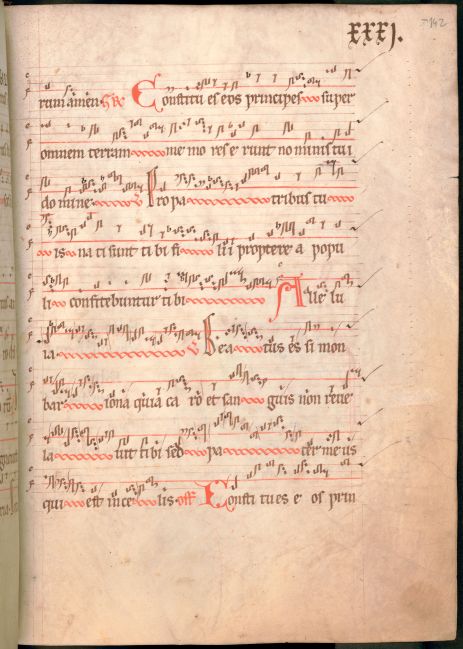 xxxj.
rum amen Constitu es eos principes super
omnem terram me mo res e runt no minis tu i
do mine v Pro pa tribus tu
is na ti sunt ti bi fi li i propter e a popu
li confitebuntur ti bi Alle lu
ia v Bea tus es si mon
bar iona quia ca ro et san guis non reve
la vit ti bi sed pa ter me us
qui est in ce lis off Consti tu es e os prin